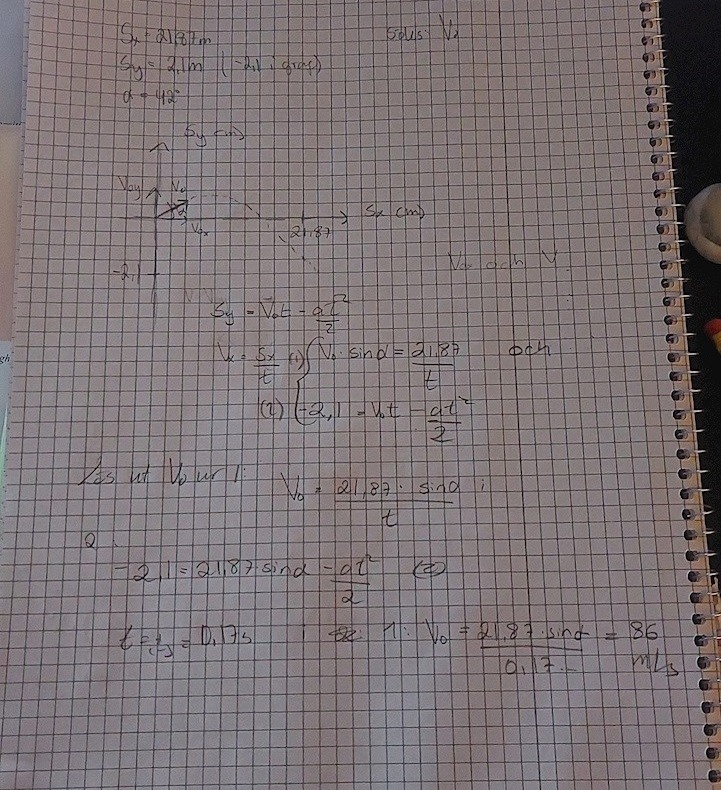 Sx = 21,87m
Sy = 2,1m (-2,1 i graf)
α = 42°
Sökes: V₀
Sy (m)
V₀y V₀
α
V₀x
21,87
Sx (m)
-2,1
V₀ och V
Sy = V₀t - at²/2
Vx = Sx/t (1) { V₀ · sinα = 21,87/t och
(2) { -2,1 = V₀t - at²/2
Lös ut V₀ ur 1: V₀ = 21,87 · sinα/t i
2
-2,1 = 21,87·sinα - at²/2 (2)
t = = 0,17s i 1: V₀ = 21,87·sinα/0,17... = 86 m/s